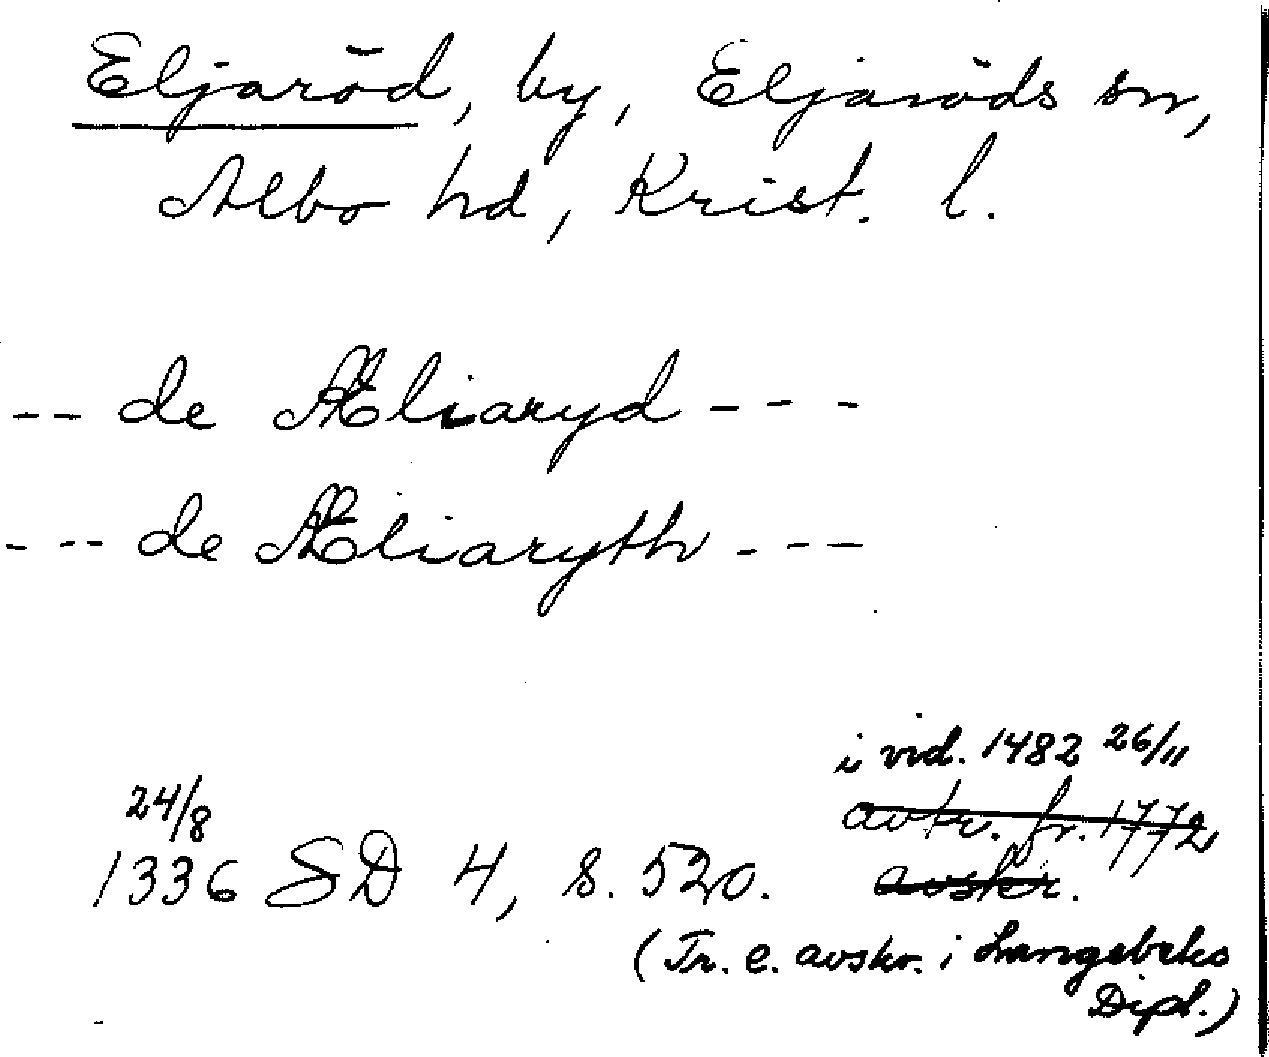 Eljaröd, by, Eljaröds sn,
Albo hd, Krist. l.
-- de Æliaryd ---
--- de Æliaryth ---
i vid. 1482 26/11
24/8
avtr. fr. 1772
1336 SD 4, s. 520. avskr.
(Tr. e. avskr. i Langebeks
Dipl.)